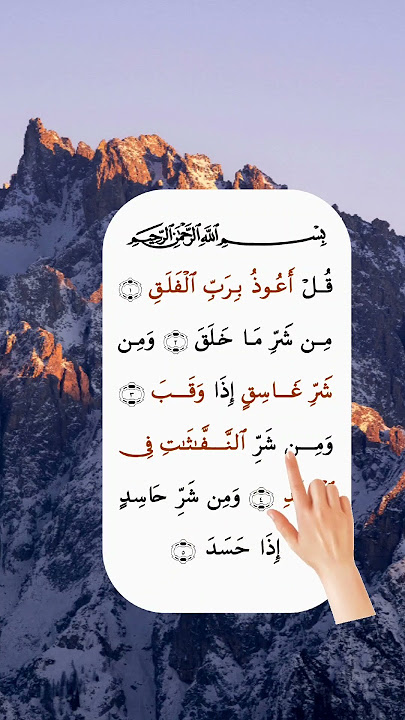 بِسْمِ ٱللَّهِ ٱلرَّحْمَٰنِ ٱلرَّحِيمِ
قُلْ أَعُوذُ بِرَبِّ ٱلْفَلَقِ ١
مِن شَرِّ مَا خَلَقَ ٢ وَمِن
شَرِّ غَاسِقٍ إِذَا وَقَبَ ٣
وَمِن شَرِّ ٱلنَّفَّٰثَٰتِ فِى
٤ وَمِن شَرِّ حَاسِدٍ
إِذَا حَسَدَ ٥